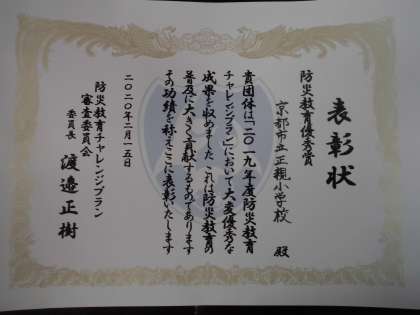 表彰状
防災教育優秀賞
京都市立正親小学校 殿
貴団体は「二〇一九年度防災教育
チャレンジプラン」において大変優秀な
成果を収めました これは防災教育の
普及に大きく貢献するものであります
その功績を称えここに表彰いたします
二〇二〇年二月一五日
防災教育チャレンジプラン
審査委員会
委員長 渡邉正樹